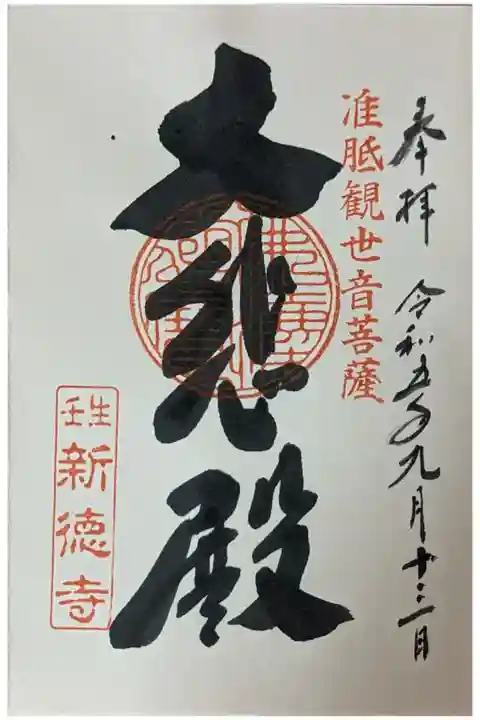 奉拝 令和五年九月十二日
准胝観世音菩薩
大悲殿
壬生
新徳寺